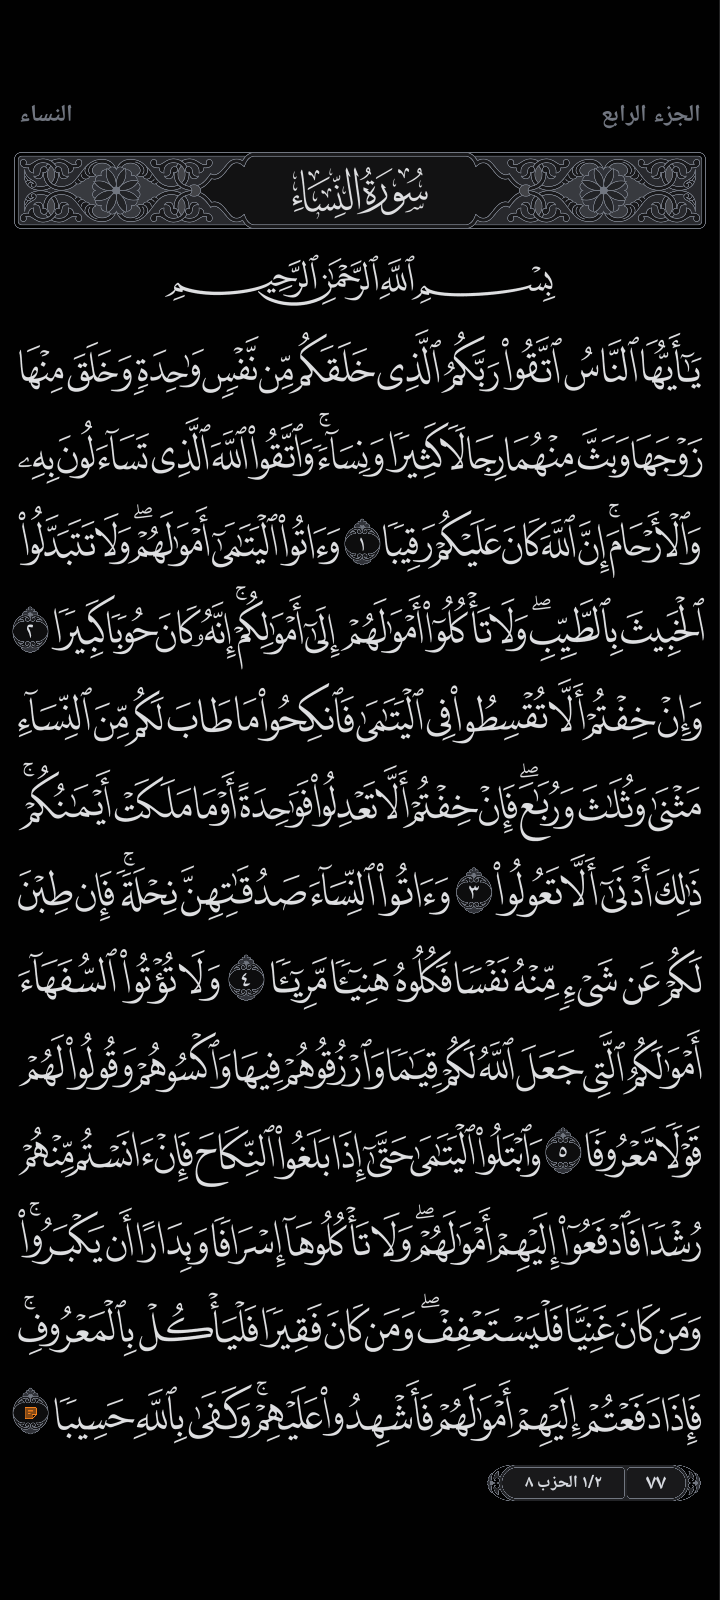 الجزء الرابع
النساء
سُورَةُ النِّسَاءِ
بِسْمِ ٱللَّهِ ٱلرَّحْمَٰنِ ٱلرَّحِيمِ
يَـٰٓأَيُّهَا ٱلنَّاسُ ٱتَّقُوا۟ رَبَّكُمُ ٱلَّذِى خَلَقَكُم مِّن نَّفْسٍ وَٰحِدَةٍ وَخَلَقَ مِنْهَا
زَوْجَهَا وَبَثَّ مِنْهُمَا رِجَالًا كَثِيرًا وَنِسَآءً ۚ وَٱتَّقُوا۟ ٱللَّهَ ٱلَّذِى تَسَآءَلُونَ بِهِۦ
وَٱلْأَرْحَامَ ۚ إِنَّ ٱللَّهَ كَانَ عَلَيْكُمْ رَقِيبًا ١ وَءَاتُوا۟ ٱلْيَتَـٰمَىٰٓ أَمْوَٰلَهُمْ ۖ وَلَا تَتَبَدَّلُوا۟
ٱلْخَبِيثَ بِٱلطَّيِّبِ ۖ وَلَا تَأْكُلُوٓا۟ أَمْوَٰلَهُمْ إِلَىٰٓ أَمْوَٰلِكُمْ ۚ إِنَّهُۥ كَانَ حُوبًا كَبِيرًا ٢
وَإِنْ خِفْتُمْ أَلَّا تُقْسِطُوا۟ فِى ٱلْيَتَـٰمَىٰ فَٱنكِحُوا۟ مَا طَابَ لَكُم مِّنَ ٱلنِّسَآءِ
مَثْنَىٰ وَثُلَـٰثَ وَرُبَـٰعَ ۖ فَإِنْ خِفْتُمْ أَلَّا تَعْدِلُوا۟ فَوَٰحِدَةً أَوْ مَا مَلَكَتْ أَيْمَـٰنُكُمْ ۚ
ذَٰلِكَ أَدْنَىٰٓ أَلَّا تَعُولُوا۟ ٣ وَءَاتُوا۟ ٱلنِّسَآءَ صَدُقَـٰتِهِنَّ نِحْلَةً ۚ فَإِن طِبْنَ
لَكُمْ عَن شَىْءٍ مِّنْهُ نَفْسًا فَكُلُوهُ هَنِيٓـًٔا مَّرِيٓـًٔا ٤ وَلَا تُؤْتُوا۟ ٱلسُّفَهَآءَ
أَمْوَٰلَكُمُ ٱلَّتِى جَعَلَ ٱللَّهُ لَكُمْ قِيَـٰمًا وَٱرْزُقُوهُمْ فِيهَا وَٱكْسُوهُمْ وَقُولُوا۟ لَهُمْ
قَوْلًا مَّعْرُوفًا ٥ وَٱبْتَلُوا۟ ٱلْيَتَـٰمَىٰ حَتَّىٰٓ إِذَا بَلَغُوا۟ ٱلنِّكَاحَ فَإِنْ ءَانَسْتُم مِّنْهُمْ
رُشْدًا فَٱدْفَعُوٓا۟ إِلَيْهِمْ أَمْوَٰلَهُمْ ۖ وَلَا تَأْكُلُوهَآ إِسْرَافًا وَبِدَارًا أَن يَكْبَرُوا۟ ۚ
وَمَن كَانَ غَنِيًّا فَلْيَسْتَعْفِفْ ۖ وَمَن كَانَ فَقِيرًا فَلْيَأْكُلْ بِٱلْمَعْرُوفِ ۚ
فَإِذَا دَفَعْتُمْ إِلَيْهِمْ أَمْوَٰلَهُمْ فَأَشْهِدُوا۟ عَلَيْهِمْ ۚ وَكَفَىٰ بِٱللَّهِ حَسِيبًا
٧٧
١/٢ الحزب ٨